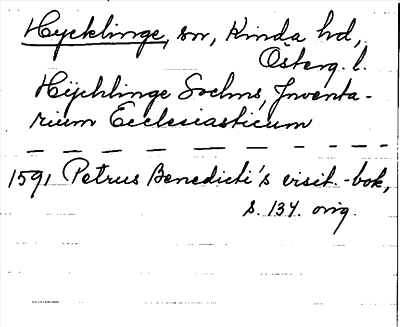 Hycklinge, sn, Kinda hd,
Österg. l.
Hijchlinge Sochns, Inventa-
rium Ecclesiasticum
1591 Petrus Benedicti's visit.-bok,
s. 134. orig.